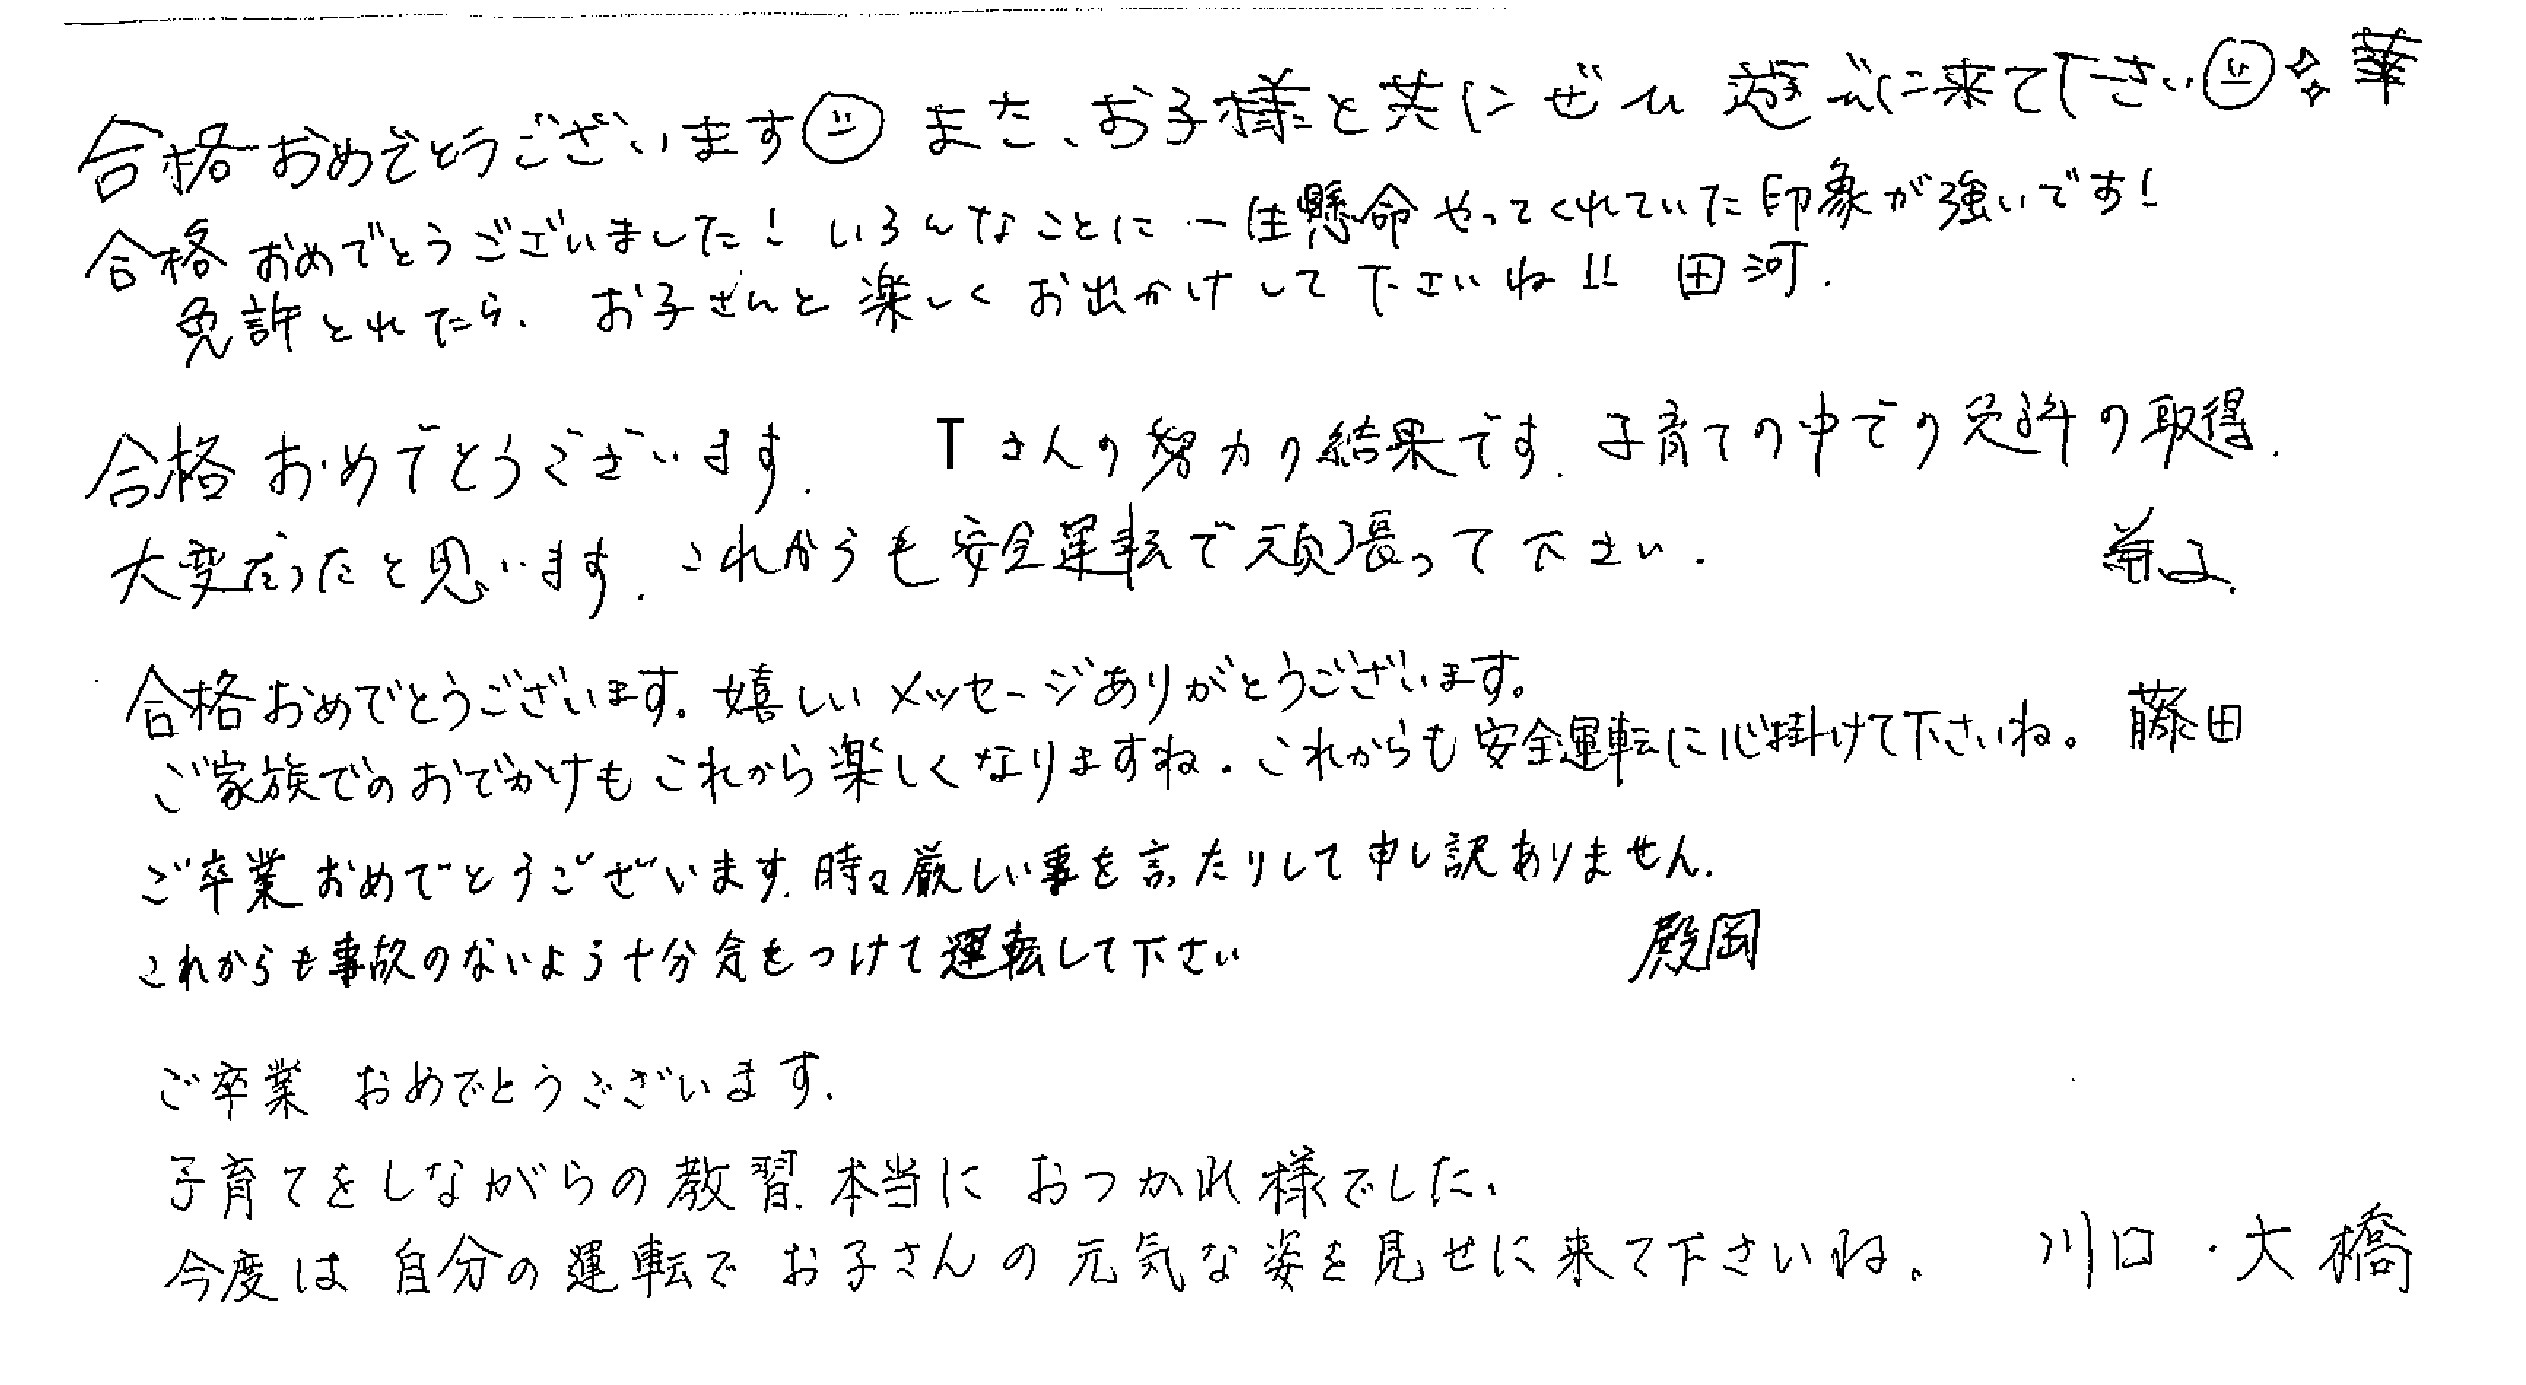 合格おめでとうございます また、お子様と共にぜひ遊びに来て下さい 華
合格おめでとうございました！いろんなことに一生懸命やってくれていた印象が強いです！
免許とれたら、お子さんと楽しくお出かけして下さいね!! 田河.
合格おめでとうございます. Tさんの努力の結果です. 子育ての中での免許の取得.
大変だったと思います. これからも安全運転で頑張って下さい.
合格おめでとうございます。嬉しいメッセージありがとうございます。
ご家族でのおでかけもこれから楽しくなりますね。これからも安全運転に心掛けて下さいね。 藤田
ご卒業おめでとうございます. 時々厳しい事を言ったりして申し訳ありません.
これからも事故のないよう十分気をつけて運転して下さい 殿岡
ご卒業 おめでとうございます.
子育てをしながらの教習 本当に おつかれ様でした、
今度は 自分の運転で お子さんの元気な姿を見せに来て下さいね。 川口・大橋